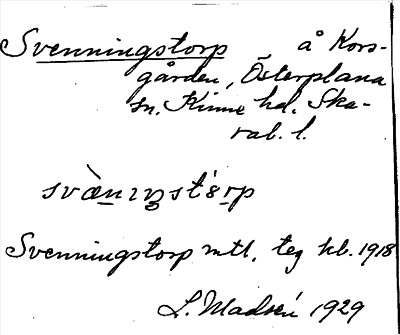 Svenningstorp å Kors-
gården, Österplana
sn. Kinne hd. Ska-
rab. l.
svæ̀nıŋst
Svenningstorp mtl. teg kb. 1918
L. Madsén 1929